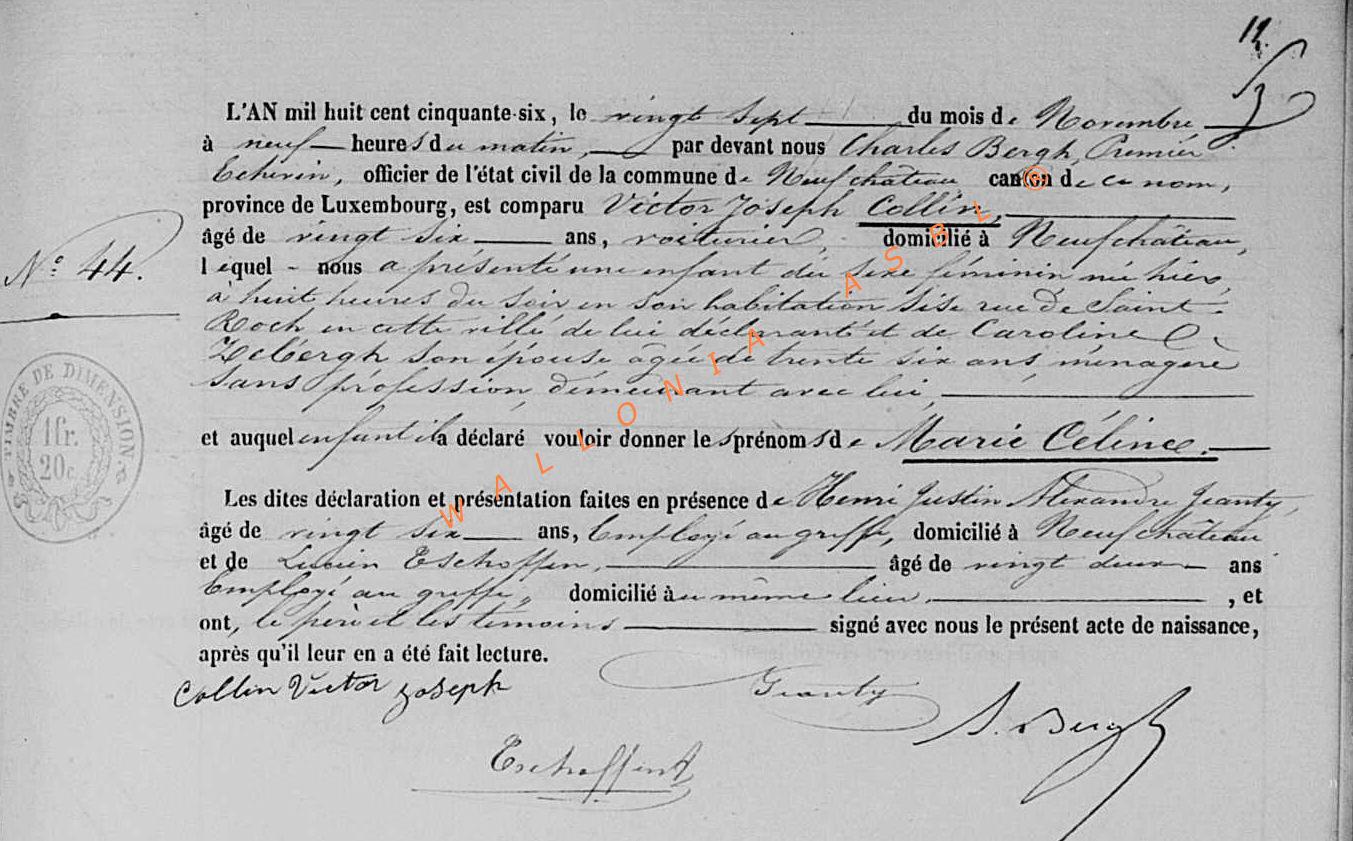 12.
L'AN mil huit cent cinquante-six, le vingt sept du mois de Novembre
à neuf heures du matin, par devant nous Charles Bergh, Premier
Echevin, officier de l'état civil de la commune de Neufchâteau canton de ce nom,
province de Luxembourg, est comparu Victor Joseph Collin,
âgé de vingt six ans, voiturier, domicilié à Neufchâteau,
lequel nous a présenté une enfant du sexe féminin née hier,
N° 44.
à huit heures du soir en son habitation sise rue de Saint-
Roch en cette ville de lui déclarant et de Caroline
son épouse âgée de trente six ans, ménagère
sans profession, demeurant avec lui,
TIMBRE DE DIMENSION
1 fr.
20 c.
et auquel enfant il a déclaré vouloir donner les prénoms de Marie Céline.
Les dites déclaration et présentation faites en présence de Henri Justin Alexandre Jeanty,
âgé de vingt six ans, Employé au greffe, domicilié à Neufchâteau
et de Lucien Eschoffen, âgé de vingt deux ans
Employé au greffe, domicilié au même lieu, , et
ont, le père et les témoins signé avec nous le présent acte de naissance,
après qu'il leur en a été fait lecture.
Collin Victor Joseph
Jeanty
Bergh
WALLONIA ASBL ©